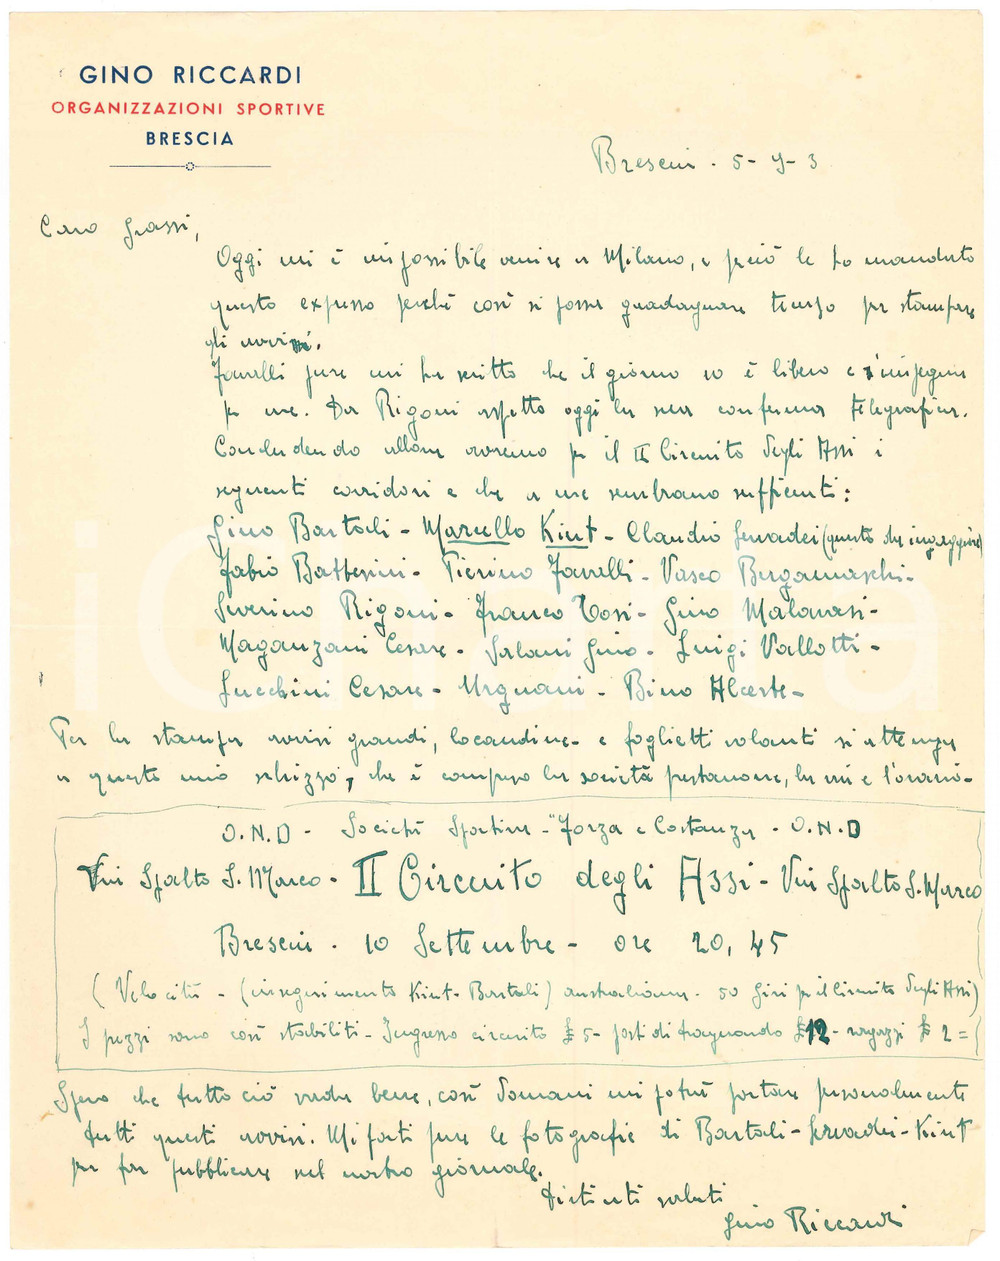 GINO RICCARDI
ORGANIZZAZIONI SPORTIVE
BRESCIA
Brescia - 5 - 9 - 3
Caro Grassi,
Oggi mi è impossibile venire a Milano, e perciò le ho mandato
questo expresso perchè così si possa guadagnare tempo per stampare
gli avvisi.
Favalli pure mi ha scritto che il giorno 10 è libero e s'impegna
per me. Da Rigoni aspetto oggi la sua conferma telegrafica.
Concludendo allora avremo per il II Circuito degli Assi i
seguenti corridori e che a me sembrano sufficenti:
Gino Bartali - Marcello Kint - Claudio Servadei (questo da ingaggiare)
Fabio Battesini - Pierino Favalli - Vasco Bergamaschi -
Severino Rigoni - Franco Tosi - Gino Malavasi -
Maganzani Cesare - Salani Gino - Luigi Vallotti -
Lucchini Cesare - Mignani - Bino Alceste -
Per la stampa avvisi grandi, locandine - e foglietti volanti si attenga
a questo mio schizzo, che è compreso la società partenone, la mi e l'orario -
O.N.D - Società Sportiva - "Forza e Costanza - O.N.D
Via Spalto S. Marco - II Circuito degli Assi - Via Spalto S. Marco
Brescia - 10 Settembre - ore 20,45
(Velocità - (inseguimento Kint - Bartali) australiana - 50 Giri per il Circuito degli Assi)
I prezzi sono così stabiliti - Ingresso circuito £ 5 - posti di traguardo £ 12 - ragazzi £ 2 =
Spero che tutto ciò vada bene, così domani mi potrà portare personalmente
tutti questi avvisi. Mi porti pure le fotografie di Bartali - Servadei - Kint
per far pubblicare nel nostro giornale.
Distinti saluti
Gino Riccardi
iCharta